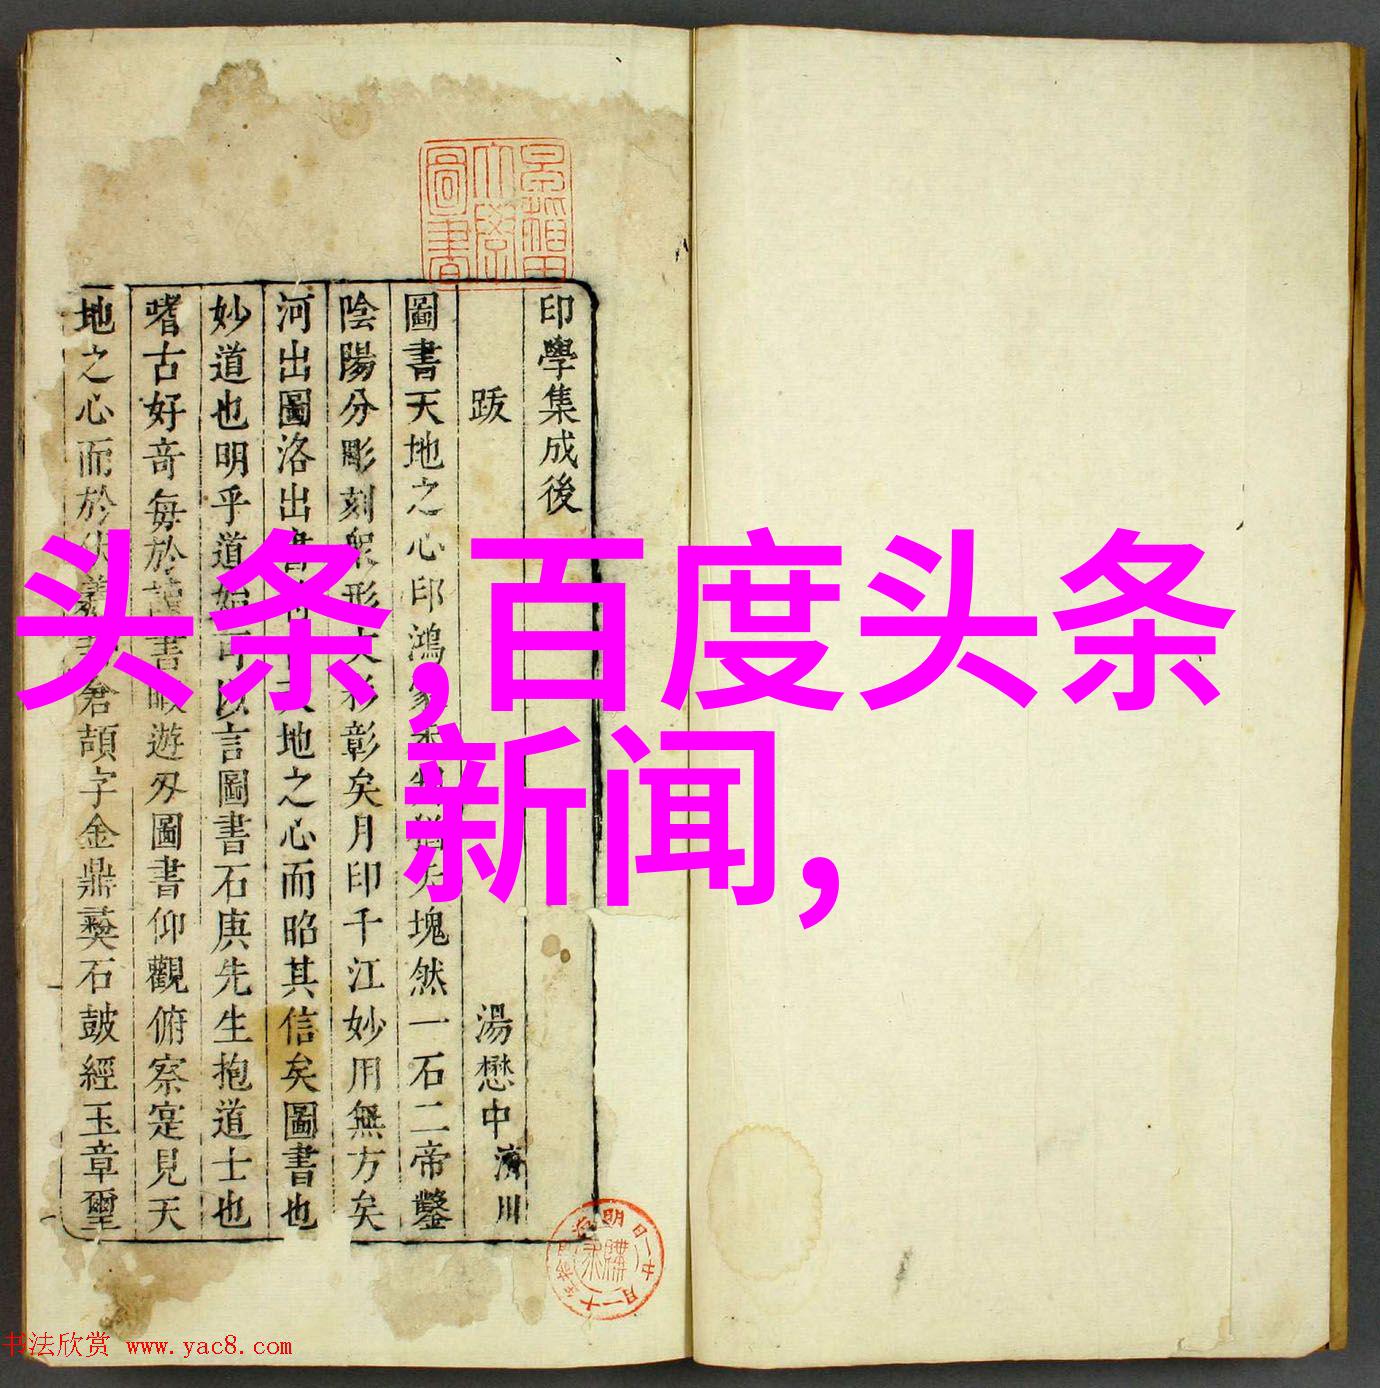 印學集成後
跋
湯懋中濟川
圖書天地之心印鴻家
塊然一石二帝鑿
陰陽分彫刻衆形大彩彰矣月印千江妙用無方矣
河出圖洛出書
地之心而昭其信矣圖書也
妙道也明乎道始可以言圖書石庚先生抱道士也
嗜古好竒每於讀書暇遊刃圖書仰觀俯察寔見天
地之心而於
倉頡字金鼎彝石鼓經玉章璽
頭条,百度头条
新闻,
明治
十一月廿一日
購求
圖書
書法欣赏 www.yac8.com